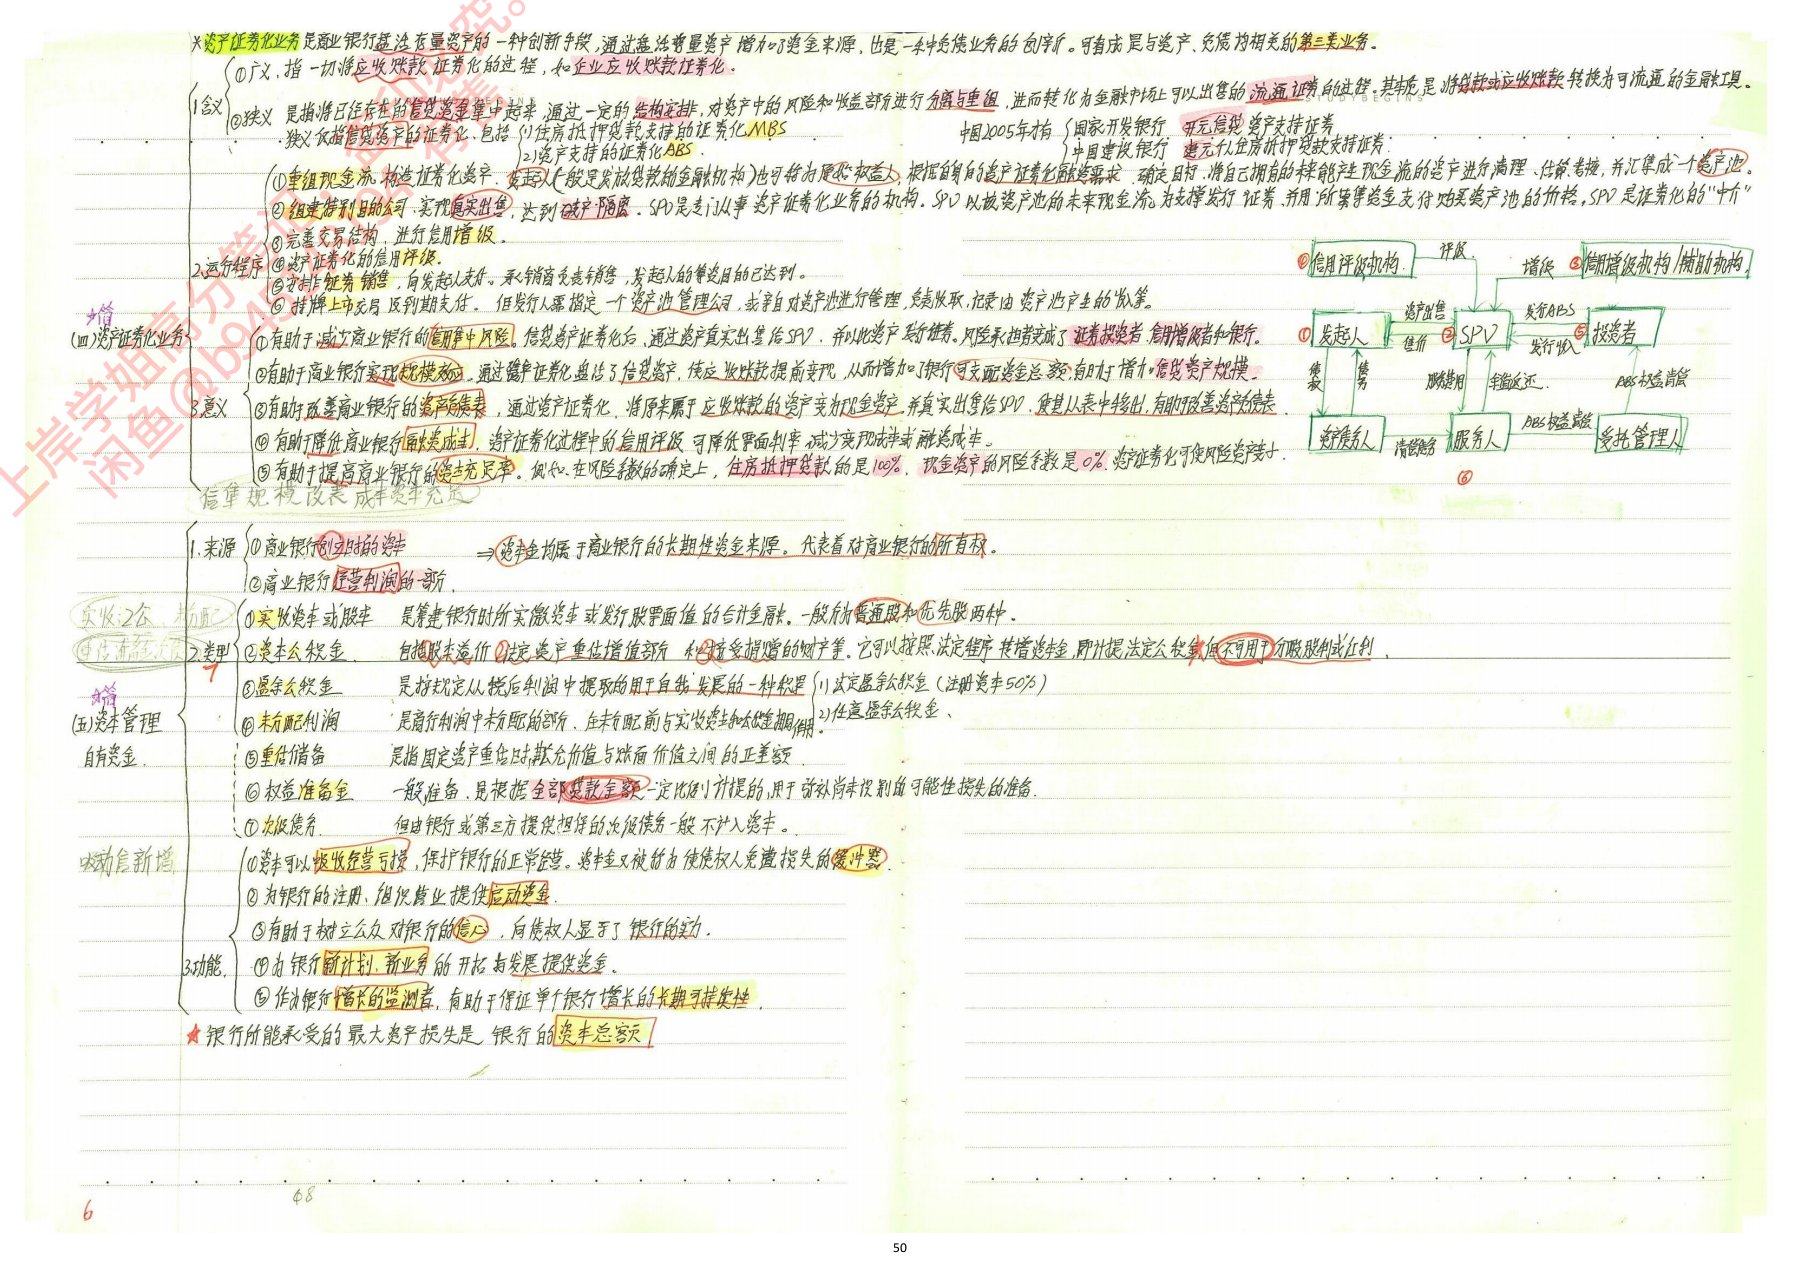 *资产证券化业务是商业银行盘活存量资产的一种创新手段,通过盘活存量资产增加了资金来源,也是一种负债业务的创新。可看成是与资产、负债均相关的第三类业务。
(四)资产证券化业务
1含义
①广义,指一切将应收账款证券化的过程,如企业应收账款证券化。
②狭义 是指将已经存在的信贷资金集中起来,通过一定的结构安排,对资产中的风险和收益部分进行分离与重组,进而转化为金融市场上可以出售的流通证券的过程。其本质是将贷款或应收账款转换为可流通的金融工具。
STUDYBEGINS
狭义仅指信贷资产的证券化,包括 1)住房抵押贷款支持的证券化MBS
2)资产支持的证券化ABS.
中国2005年才有 国家开发银行 开元信贷资产支持证券
中国建设银行 建元个人住房抵押贷款支持证券.
2.运行程序
①重组现金流,构造证券化资产.发起人(一般是发放贷款的金融机构)也可称为原始权益人,根据自身的资产证券化融资需求,确定目标,将自己拥有的未来能产生现金流的资产进行清理、估算、考核,并汇集成一个资产池.
②组建特别目的公司,实现真实出售,达到破产隔离。SPV是专门从事资产证券化业务的机构。SPV以被资产池的未来现金流为支撑发行证券,并用所募集资金支付购买资产池的价格。SPV是证券化的"中介"
③完善交易结构,进行信用增级。
④资产证券化的信用评级.
⑤安排证券销售,向发起人支付。承销商负责销售,发起人的筹资目的已达到。
⑥挂牌上市交易及到期支付。但发行人需指定一个资产池管理公司,或亲自对资产池进行管理,负责收取,记录由资产池产生的收入等。
④信用评级机构
评级
增级
③信用增级机构/辅助机构
①发起人
资产出售
售价
②SPV
发行ABS
发行收入
⑤投资者
债权
债务
服务费用
本息返还
ABS权益偿付
资产债务人
清偿债务
服务人
ABS权益偿付
受托管理人
⑥
3意义
①有助于减少商业银行的信用集中风险。信贷资产证券化后,通过资产真实出售给SPV,并以此资产发行证券。风险承担者变成了证券投资者、信用增级者和银行。
②有助于商业银行实现规模效应。通过资产证券化盘活了信贷资产,使应收账款提前变现,从而增加了银行可支配资金总额,有助于增加信贷资产规模。
③有助于改善商业银行的资产负债表,通过资产证券化,将原来属于应收账款的资产变为现金资产,并真实出售给SPV,使其从表中移出,有助于改善资产负债表.
④有助于降低商业银行融资成本。资产证券化过程中的信用评级可降低票面利率,减少变现成本或融资成本。
⑤有助于提高商业银行的资本充足率。例如,在风险系数的确定上,住房抵押贷款的是100%,现金资产的风险系数是0%.资产证券化可使风险资产变小.
信集规模改表成本资本充足
(五)资本管理
自有资金.
1.来源
①商业银行创立时的资本
⇒资本金均属于商业银行的长期性资金来源。代表着对商业银行的所有权。
②商业银行经营利润的一部分.
2类型
7
①实收资本或股本 是筹建银行时所实缴资本或发行股票面值的合计金融。一般分为普通股和优先股两种。
②资本公积金 包括股本溢价 法定资产重估增值部分 和接受捐赠的财产等。它可以按照法定程序转增资本金,即计提法定公积金,但不可用于分配股利或红利.
③盈余公积金 是按规定从税后利润中提取的用于自我发展的一种积累 1)法定盈余公积金(注册资本50%)
2)任意盈余公积金、
④未分配利润 是商行利润中未分配的部分、在未分配前与实收资本和公积金相同作用。
⑤重估储备 是指固定资产重估时,其公允价值与账面价值之间的正差额.
⑥权益准备金 一般准备,是根据全部贷款余额一定比例计提的,用于弥补尚未识别的可能性损失的准备.
⑦次级债务 但由银行或第三方提供担保的次级债务一般不计入资本。
3.功能.
吸动信新增
①资本可以吸收经营亏损,保护银行的正常经营。资本金又被称为使债权人免遭损失的缓冲器
②为银行的注册、组织营业提供启动资金.
③有助于树立公众对银行的信心,向债权人显示了银行的实力.
④为银行新计划、新业务的开拓与发展提供资金.
⑤作为银行增长的监测者,有助于保证单个银行增长的长期可持续性.
★银行所能承受的最大资产损失是银行的资本总额
68
6
50
上岸学姐高分笔记
闲鱼@b94586